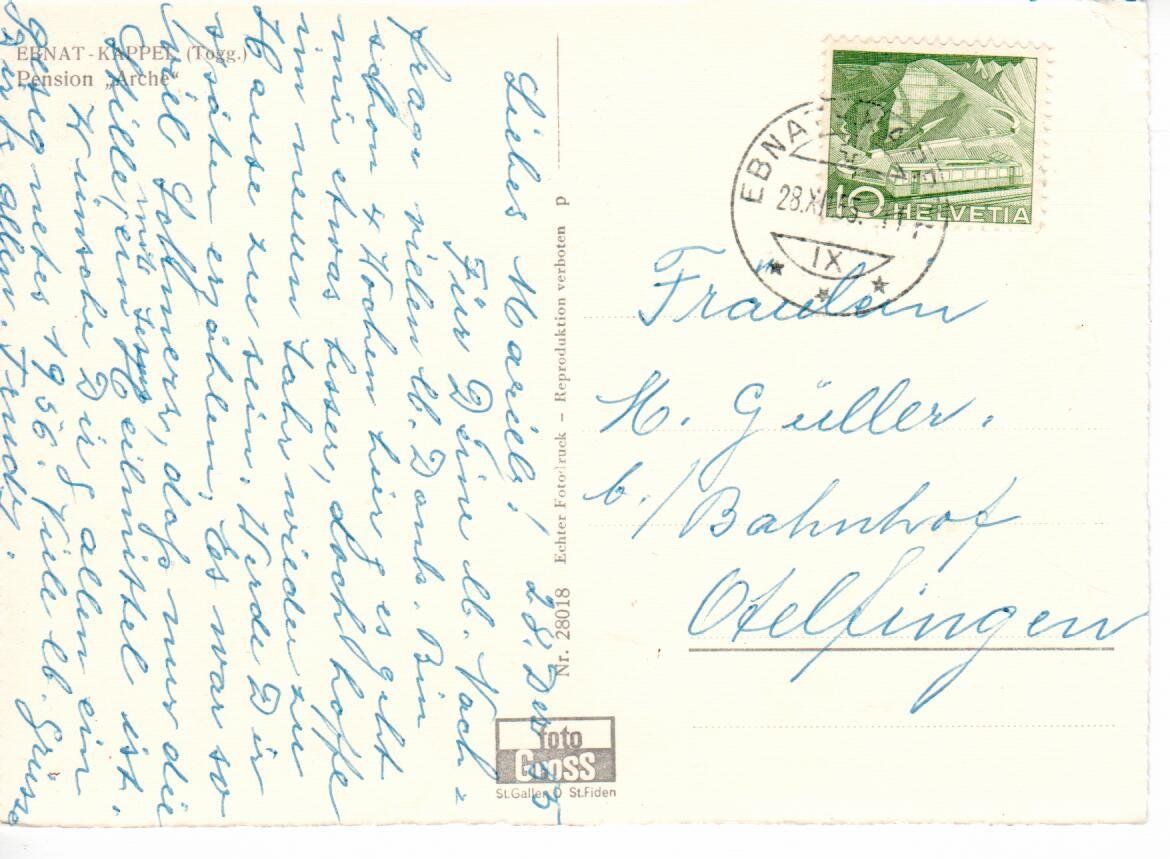 EBNAT-KAPPEL (Togg.)
Pension „Arche"
Liebes Marieli! 28. Dez 55
Für Deine lb. Nach=
frage vielen lb. Dank. Bin
schon 4 Wochen hier & es geht
mir etwas besser, doch hoffe
im neuen Jahr wieder zu
Hause zu sein. Werde Dir
später erzählen. Es war so
viel Schmerz, dass nur die
Stille ein Heilmittel ist.
Wünsche Dir & allen ein
gesegnetes 1956. Viele lb. Grüsse
allen. Trudy.
Nr. 28018 Echter Fotodruck – Reproduktion verboten p
foto
Gross
St.Gallen O St.Fiden
HELVETIA
10
EBNAT-KAPPEL
28.XII.55.
IX
Fräulein
M. Güller.
b./ Bahnhof
Otelfingen